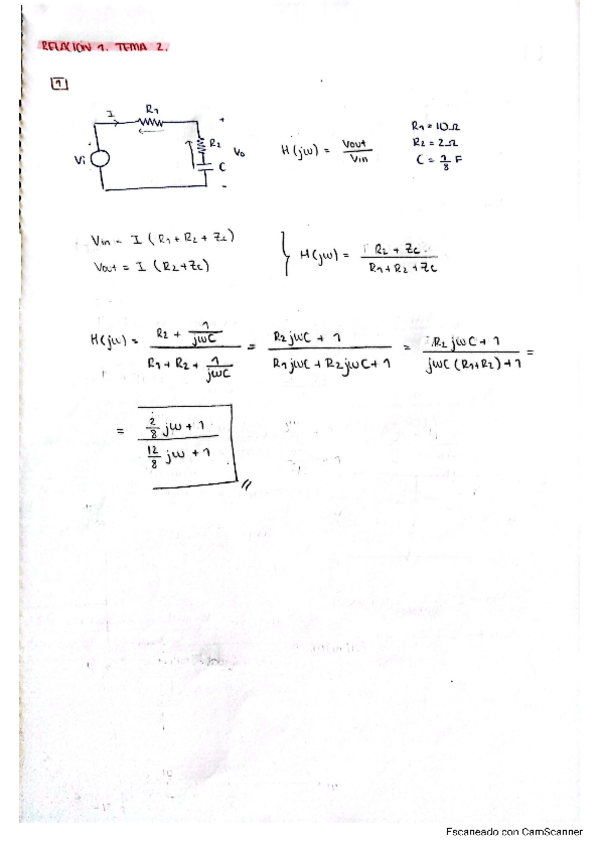 RELACIÓN 1. TEMA 2.
1
I R1
R2 Vo
Vi C
+
-
H(jω) = Vout / Vin
R1 = 10Ω
R2 = 2Ω
C = 1/8 F
Vin = I (R1 + R2 + Zc)
Vout = I (R2 + Zc)
} H(jω) = R2 + Zc / R1 + R2 + Zc
H(jω) = (R2 + 1/jωC) / (R1 + R2 + 1/jωC) = (R2 jωC + 1) / (R1 jωC + R2 jωC + 1) = (R2 jωC + 1) / (jωC (R1 + R2) + 1) =
= (2/8 jω + 1) / (12/8 jω + 1) //
Escaneado con CamScanner